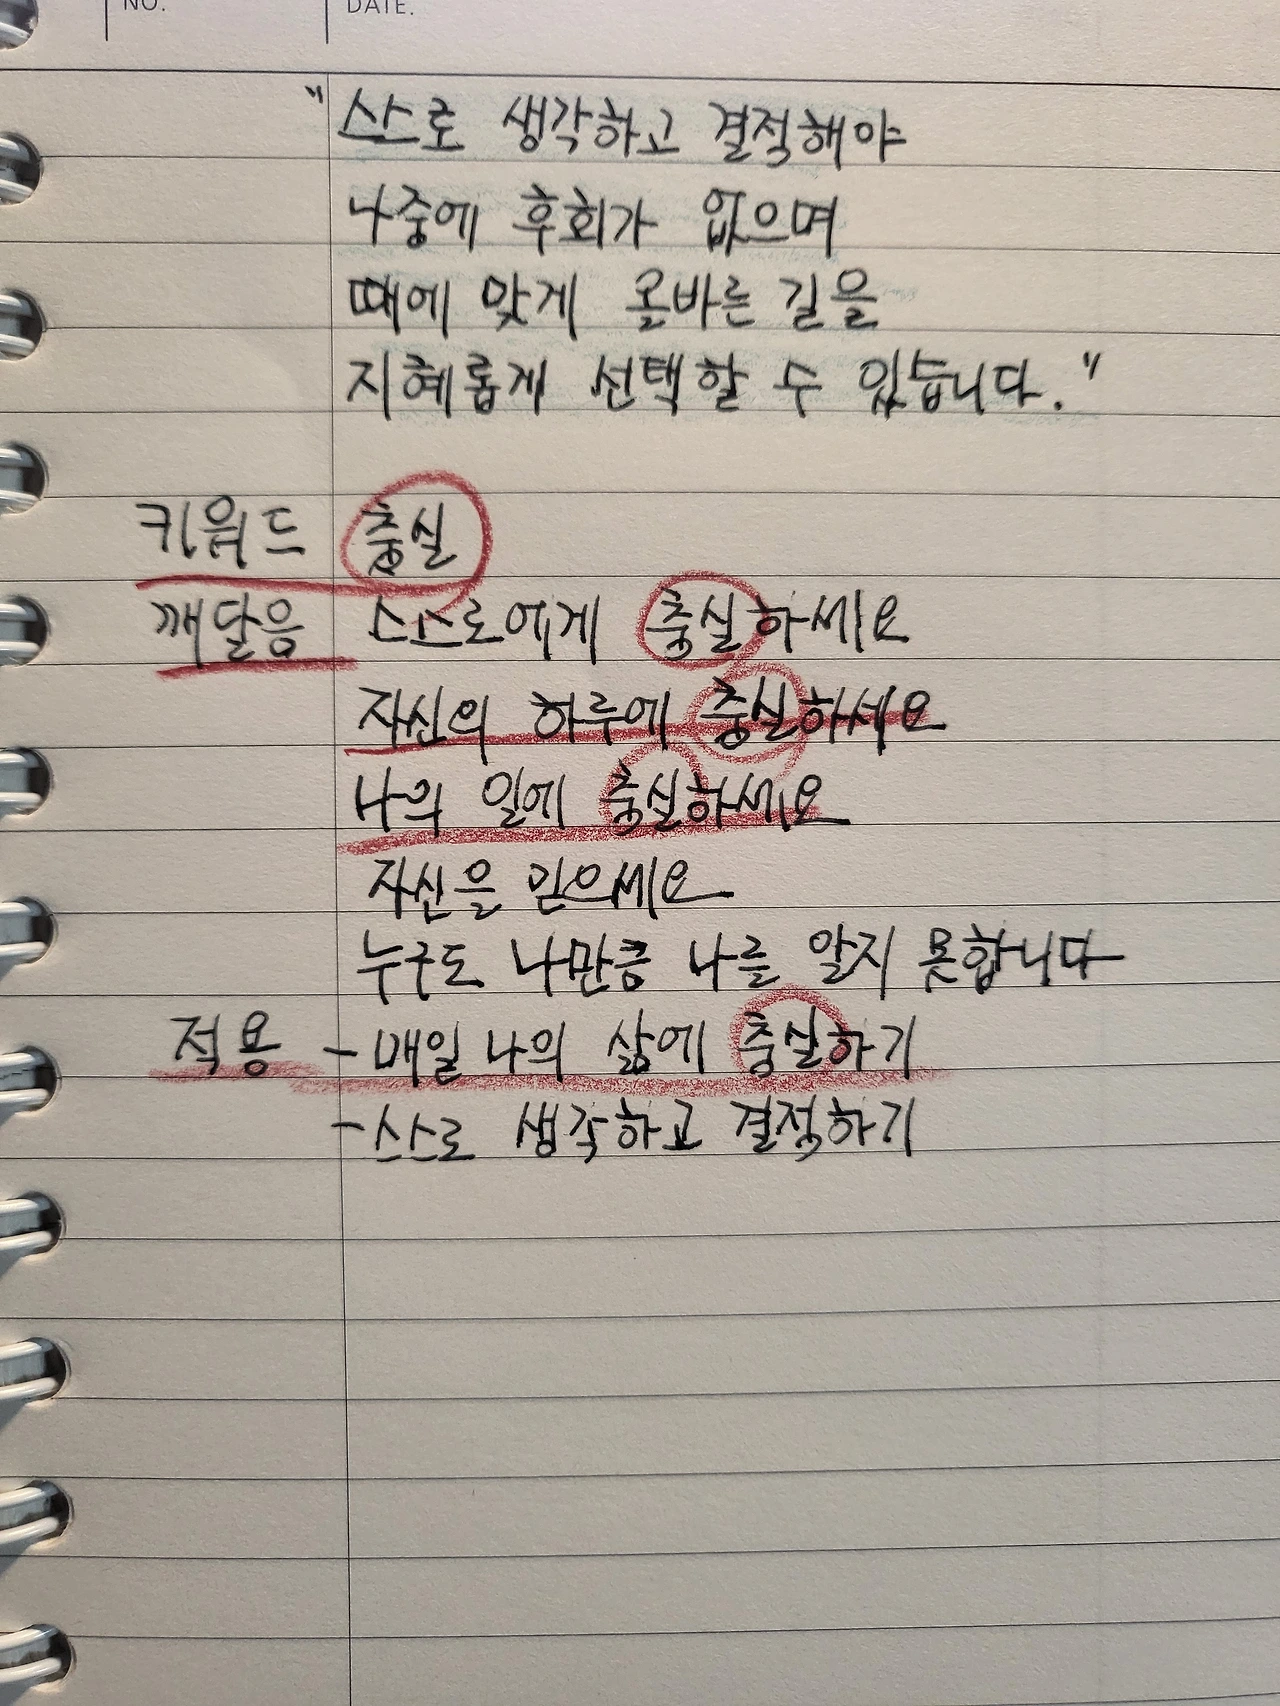 NO. DATE.
"스스로 생각하고 결정해야
나중에 후회가 없으며
때에 맞게 올바른 길을
지혜롭게 선택할 수 있습니다."
키워드 충실
깨달음 스스로에게 충실하세요
자신의 하루에 충실하세요
나의 일에 충실하세요
자신을 믿으세요
누구도 나만큼 나를 알지 못합니다
적용 - 매일 나의 삶에 충실하기
- 스스로 생각하고 결정하기